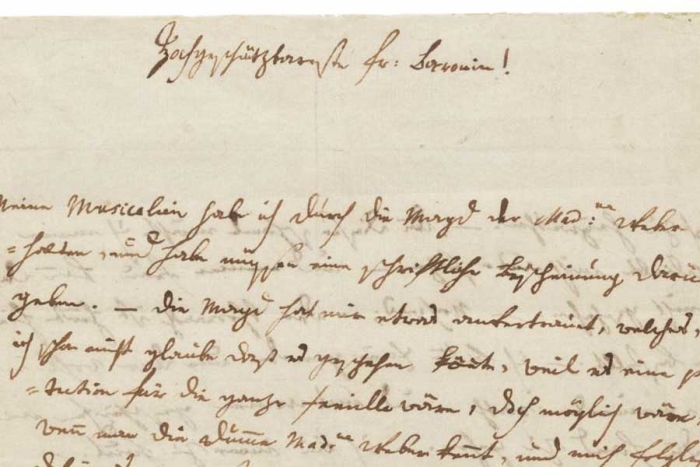 Hochgeschätzbarste fr: Baronin!
Meine Musicalien habe ich durch die Magd der Mad:me Webe
=halten, und habe müssen eine schriftliche bescheinung darü
geben. — die Magd hat mir etwas anvertrauet, welches,
ich schon nicht glaube daß es geschehen könnt, weil es eine p
=tution für die ganze famille wäre, doch möglich wäre,
wenn man die dumme Mad:me Weber kennt, und mich folglic